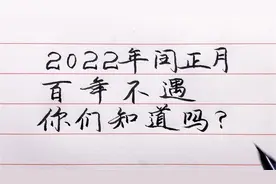 2022年闰正月
百年不遇
你们知道吗?